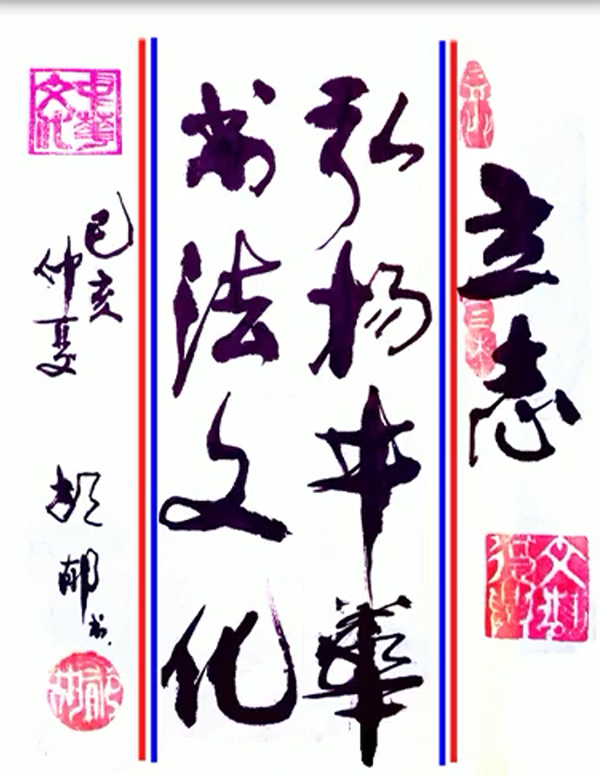 立志
弘扬中華
书法文化
己亥
仲夏
胡郁书
中華文化